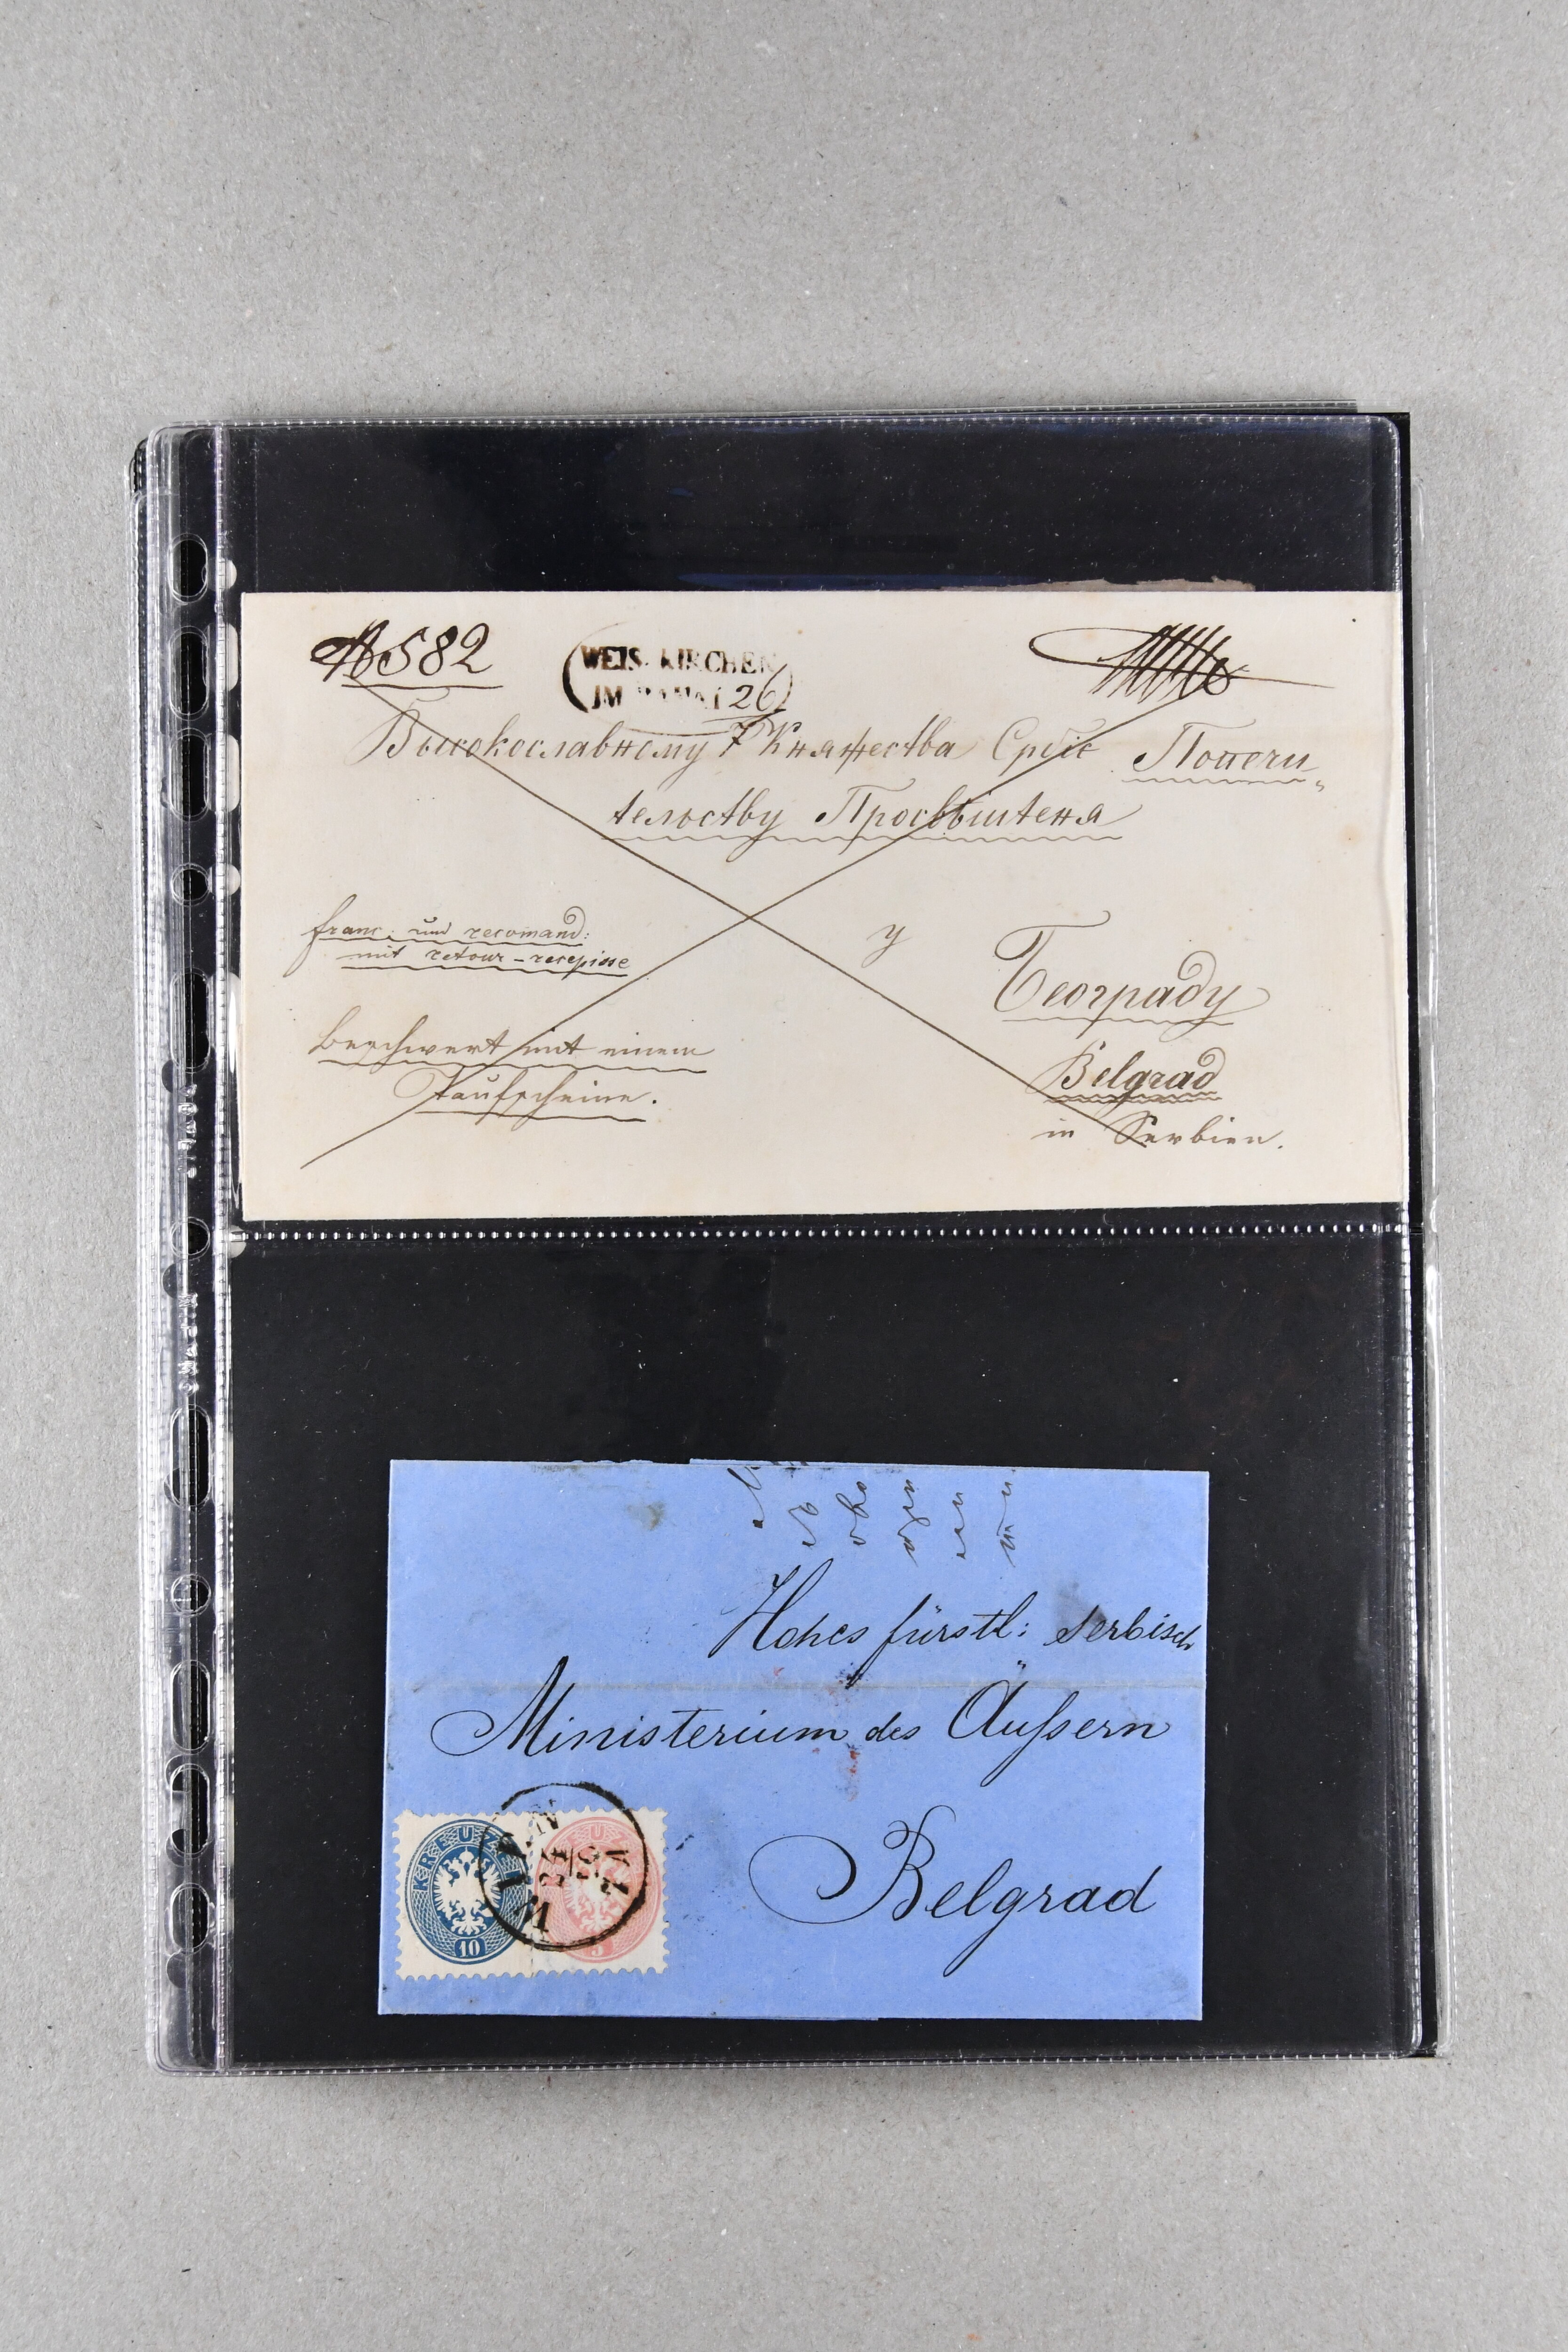 № 582
WEIS KIRCHEN
IM BANAT 26
7
Высокославному Княжества Србс Попечи„
тельству Просвѣштеня
franc. und recomand:
mit retour-recepisse
у
Београду
Beschwert mit einem
Taufscheine.
Belgrad
in Serbien.
Hohes fürstl: serbisch
Ministerium des Äußern
Belgrad
WIEN
KREUZER
10
5